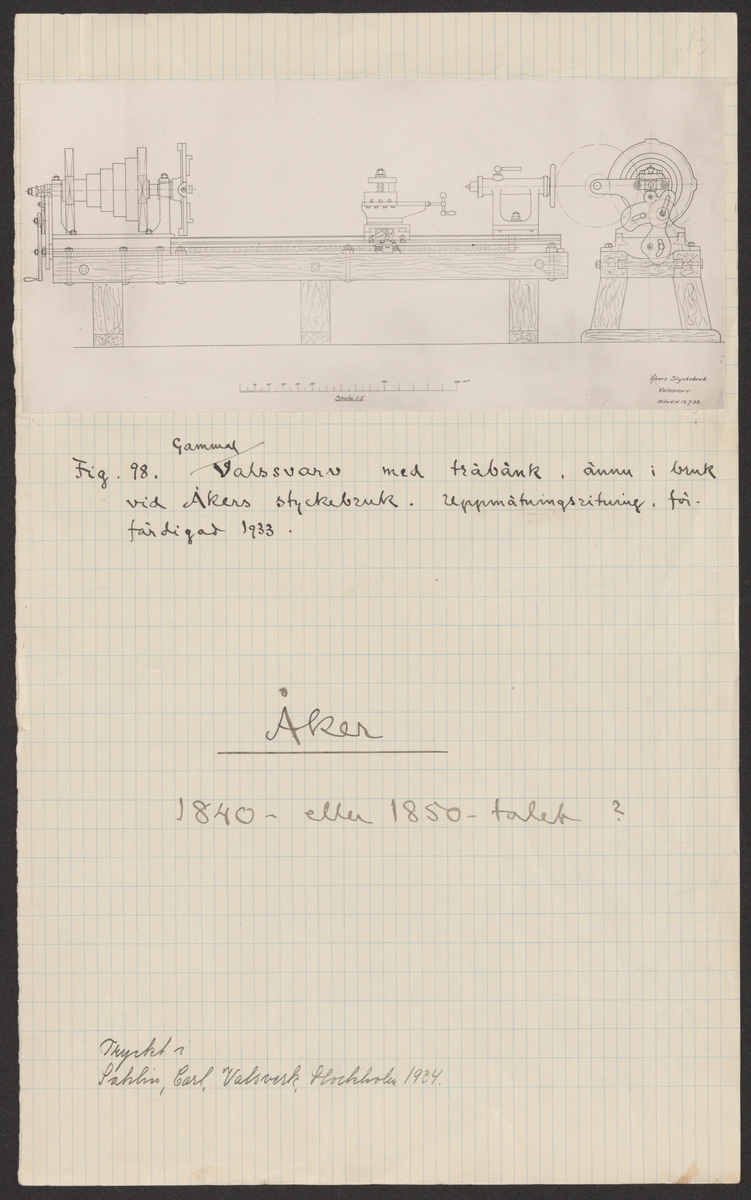 13
Åkers Styckebruk
Valssvarv
Skala 1:5
Gammal
Fig. 98. Valssvarv med träbänk, ännu i bruk
vid Åkers styckebruk. Uppmätningsritning, för-
färdigad 1933.
Åker
1840- eller 1850-talet ?
Tryckt i
Sahlin, Carl, Valsverk, Stockholm 1934.